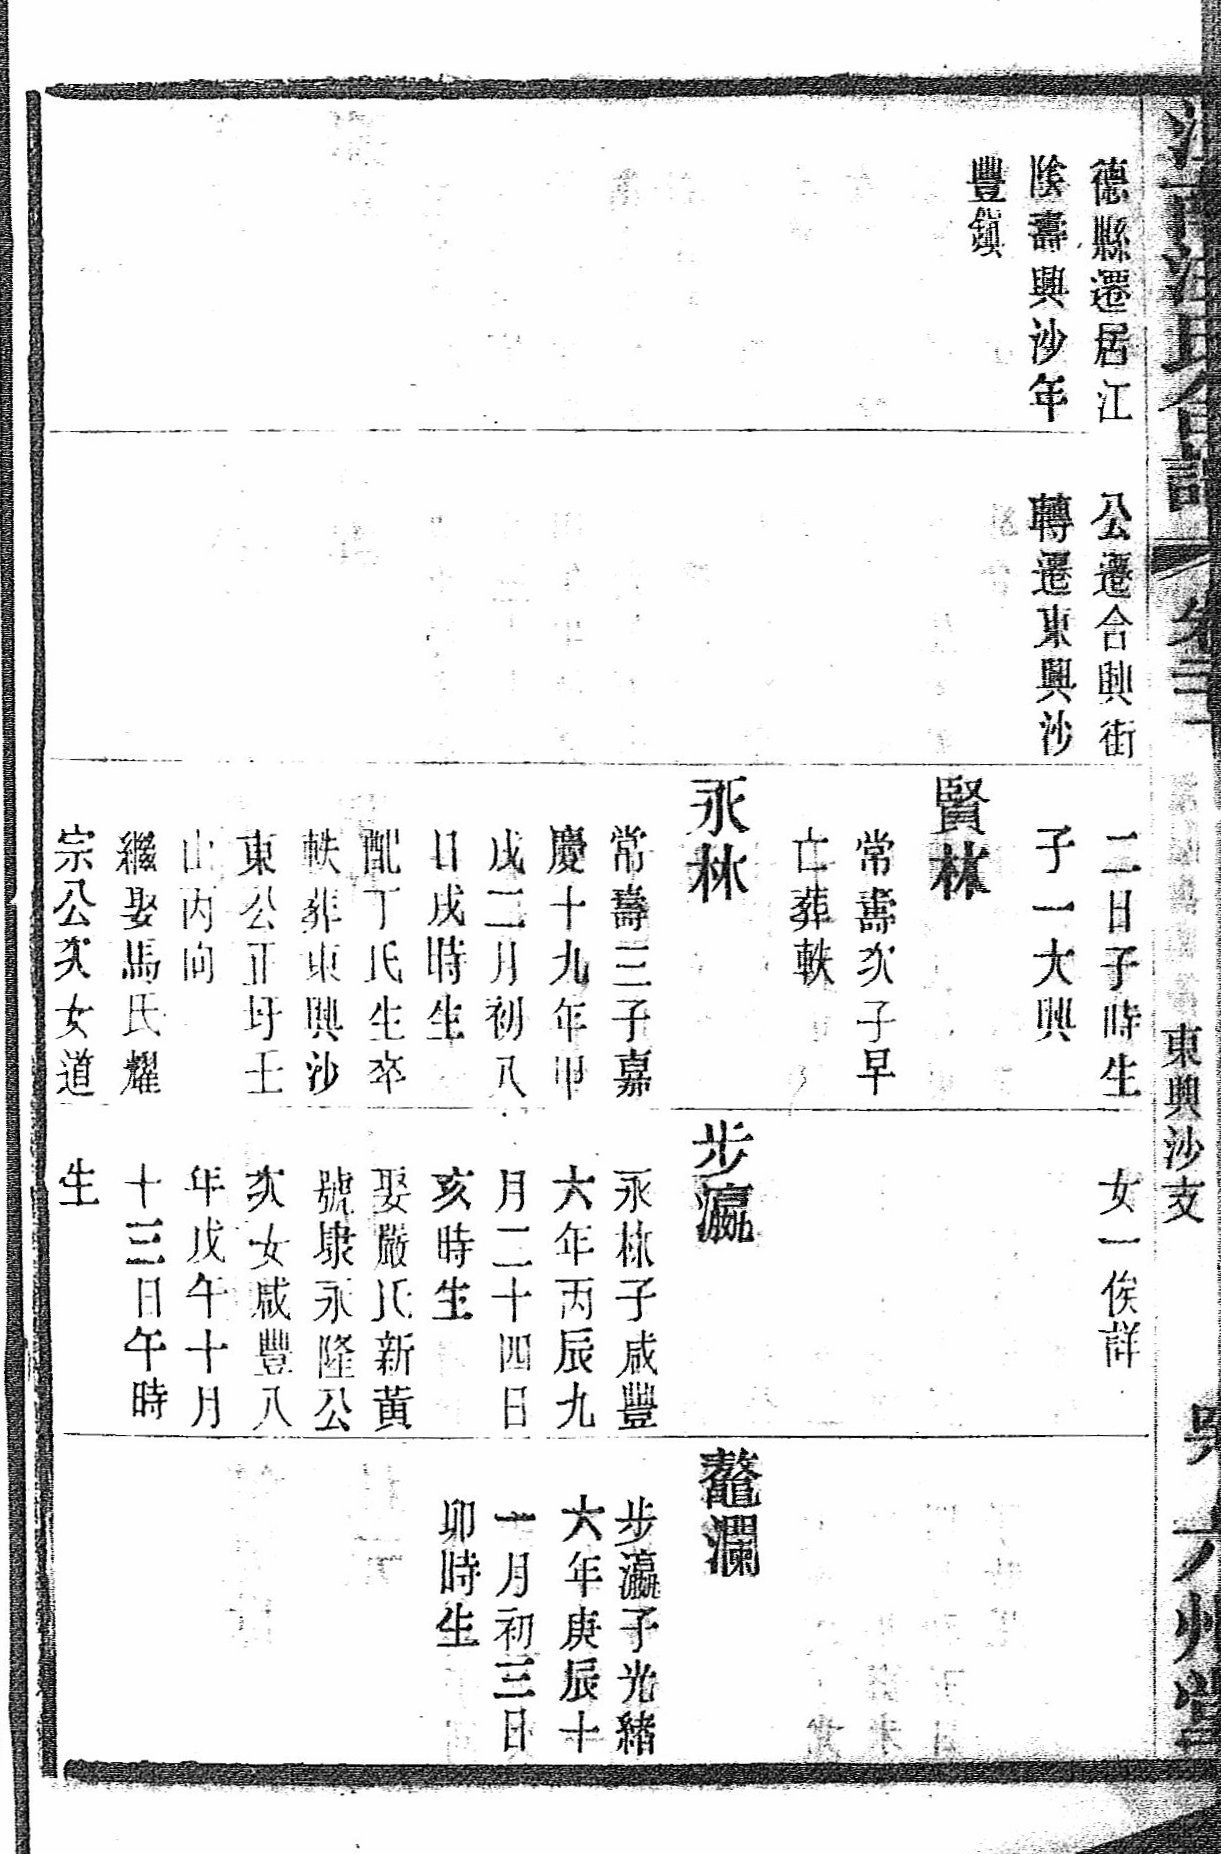 德縣遷居江
陰壽興沙年
豐鎮
公遷合興街
轉遷東興沙
二日子時生
子一大興
賢林
常壽次子早
亡葬軼
永林
常壽三子嘉
慶十九年甲
戌二月初八
日戌時生
配丁氏生卒
軼葬東興沙
東公正圩壬
山丙向
繼娶馬氏耀
宗公次女道
女一俟詳
步瀛
永林子咸豐
六年丙辰九
月二十四日
亥時生
娶嚴氏新黃
號埭永隆公
次女咸豐八
年戊午十月
十三日午時
生
鼇瀾
步瀛子光緒
六年庚辰十
一月初三日
卯時生
東興沙支
六州堂